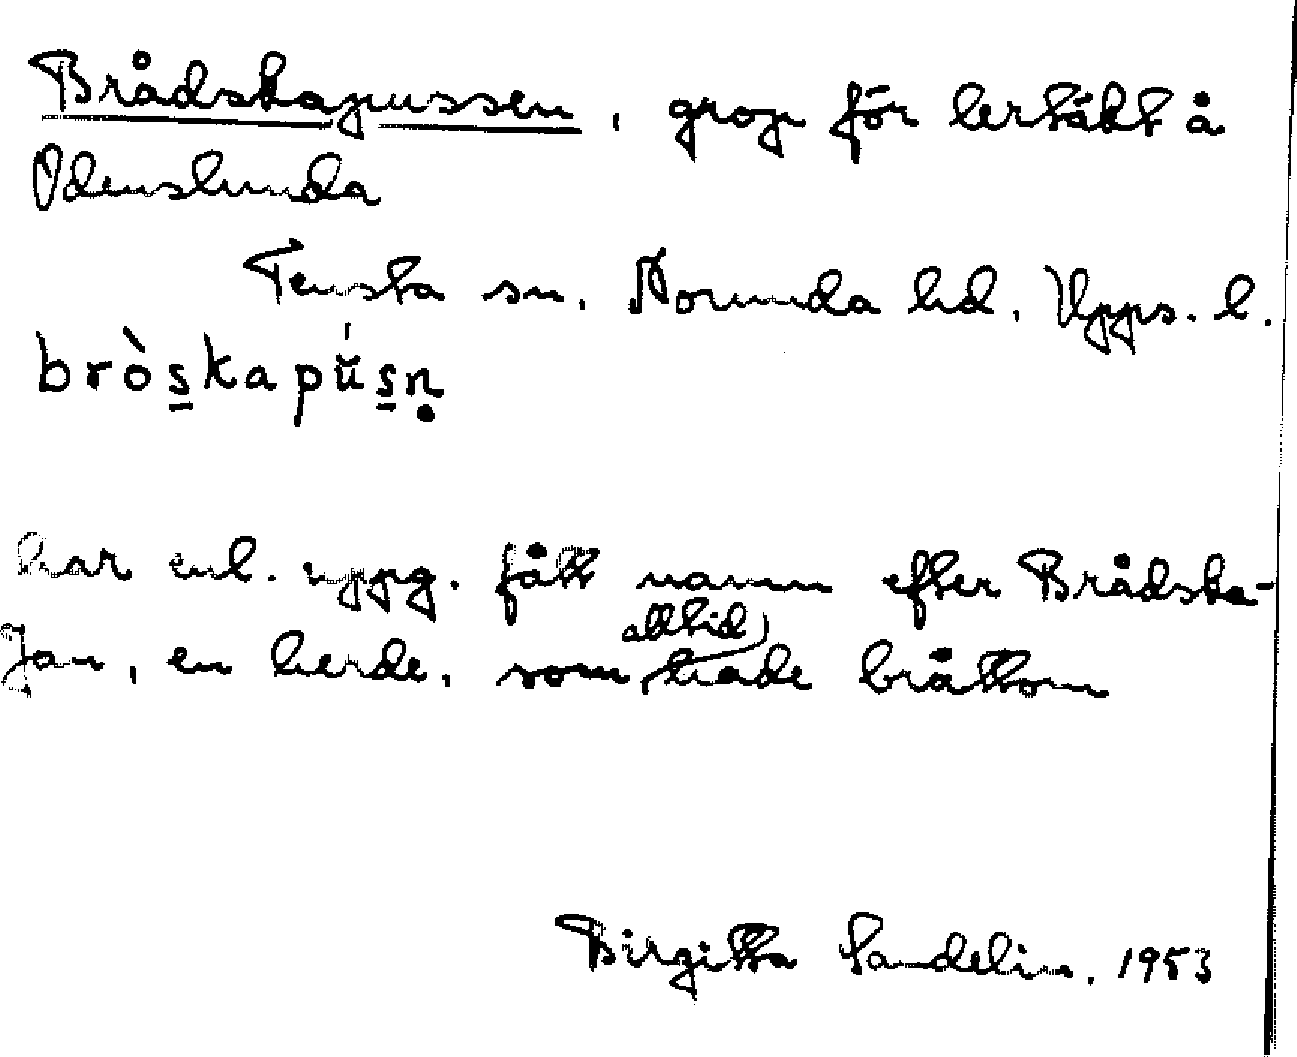 Brådskapussen, grop för lertäkt å
Odenslunda
Tensta sn. Norunda hd. Upps. l.
bròs̲kapŭ́s̲ṇ
har enl. uppg. fått namn efter Brådska-
Jan, en herde, som alltid hade bråttom
Birgitta Sandelin. 1953